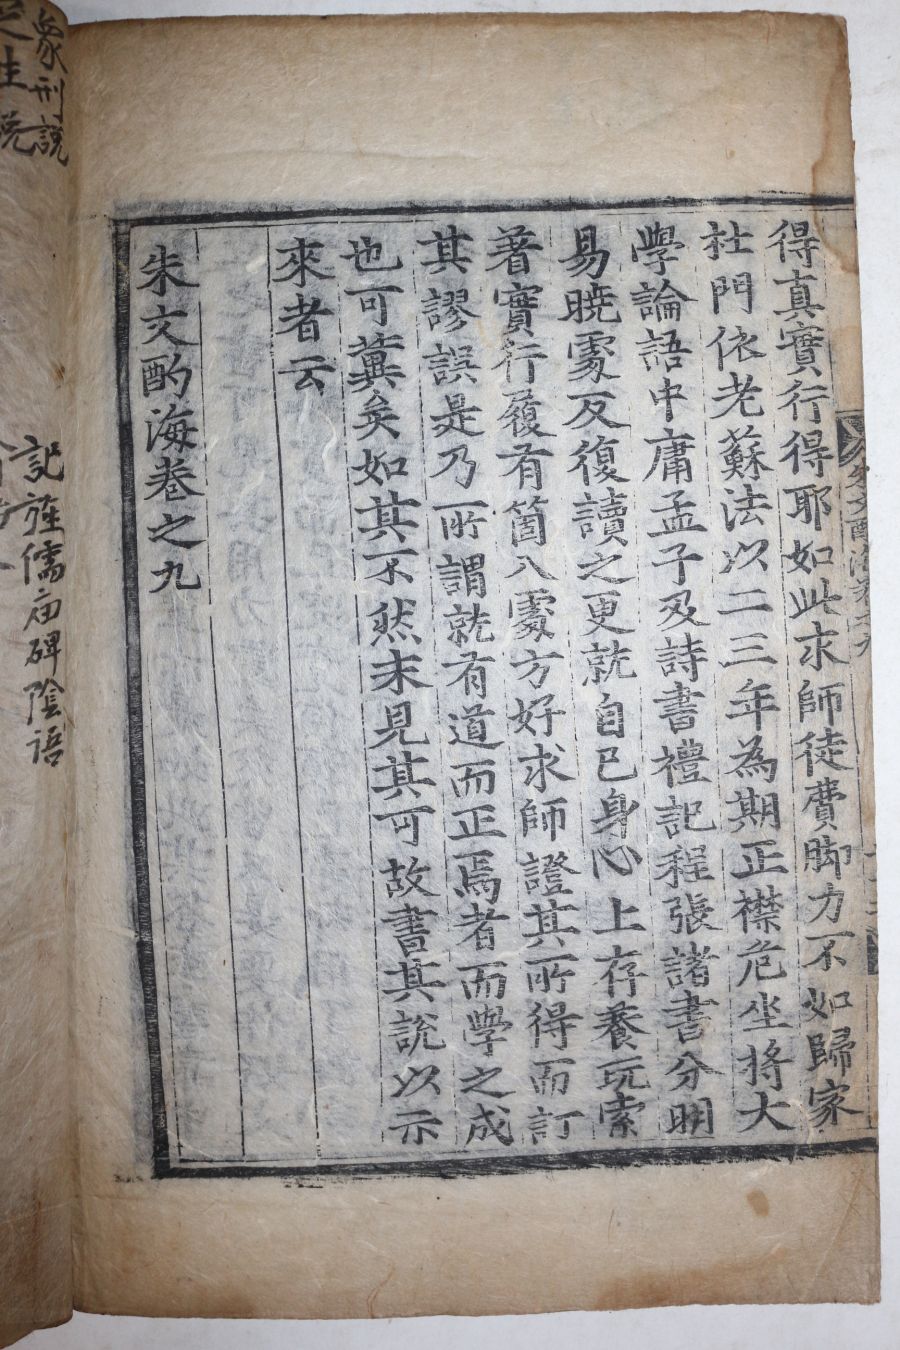 得真實行得耶如此求師徒費脚力不如歸家
杜門依老蘇法以二三年為期正襟危坐將大
學論語中庸孟子及詩書禮記程張諸書分明
易曉處反復讀之更就自己身心上存養玩索
著實行履有箇入處方好求師證其所得而訂
其謬誤是乃所謂就有道而正焉者而學之成
也可冀矣如其不然未見其可故書其說以示
來者云
朱文酌海卷之九
朱文酌海卷之九
象刑說
記旌儒庙碑陰語